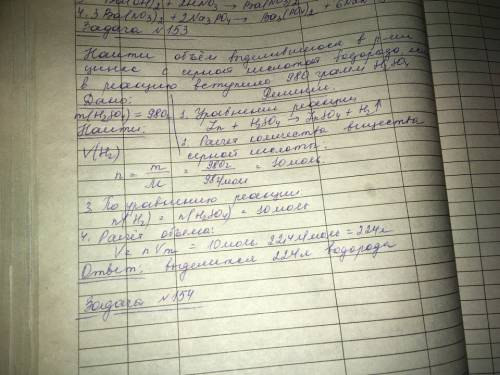 4. 3 Ba(NO₃)₂ + 2Na₃PO₄ → Ba₃(PO₄)₂ + 6Na
Задача №153
Найти объём выделившегося в р-ии
цинка с серной кислотой водорода, если
в реакцию вступило 980 грамм H₂SO₄
Дано: Решение.
m(H₂SO₄) = 980г 1. Уравнение реакции
Найти: Zn + H₂SO₄ → ZnSO₄ + H₂↑
V(H₂) 2. Расчёт количества вещества
серной кислоты:
n = m/M = 980г/98г/моль = 10моль
3. По уравнению реакции
n(H₂) = n(H₂SO₄) = 10моль
4. Расчёт объёма:
V = n Vm = 10моль 22,4л/моль = 224л
Ответ: выделится 224л водорода
Задача №154